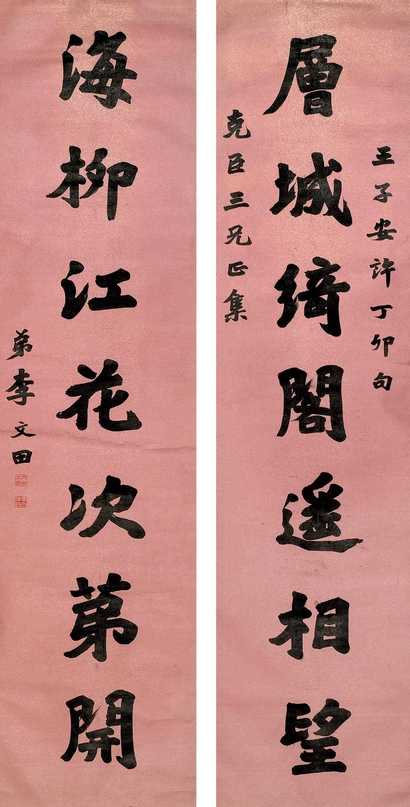 王子安許丁卯句
層城綺閣遥相望
克臣三兄正集
海柳江花次第開
弟李文田